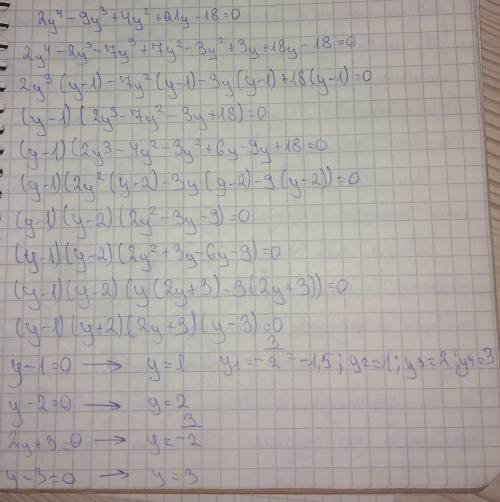 2y⁴-9y³+4y²+21y-18=0
2y⁴-2y³-7y³+7y²-3y²+3y+18y-18=0
2y³(y-1)-7y²(y-1)-3y(y-1)+18(y-1)=0
(y-1)(2y³-7y²-3y+18)=0
(y-1)(2y³-4y²-3y²+6y-9y+18=0
(y-1)(2y²(y-2)-3y(y-2)-9(y-2))=0
(y-1)(y-2)(2y²-3y-9)=0
(y-1)(y-2)(2y²+3y-6y-9)=0
(y-1)(y-2)(y(2y+3)-3(2y+3))=0
(y-1)(y+2)(2y+3)(y-3)=0
y-1=0 → y=1 y1=-3/2=-1,5; y2=1; y3=2; y4=3
y-2=0 → y=2
2y+3=0 → y=-3/2
y-3=0 → y=3